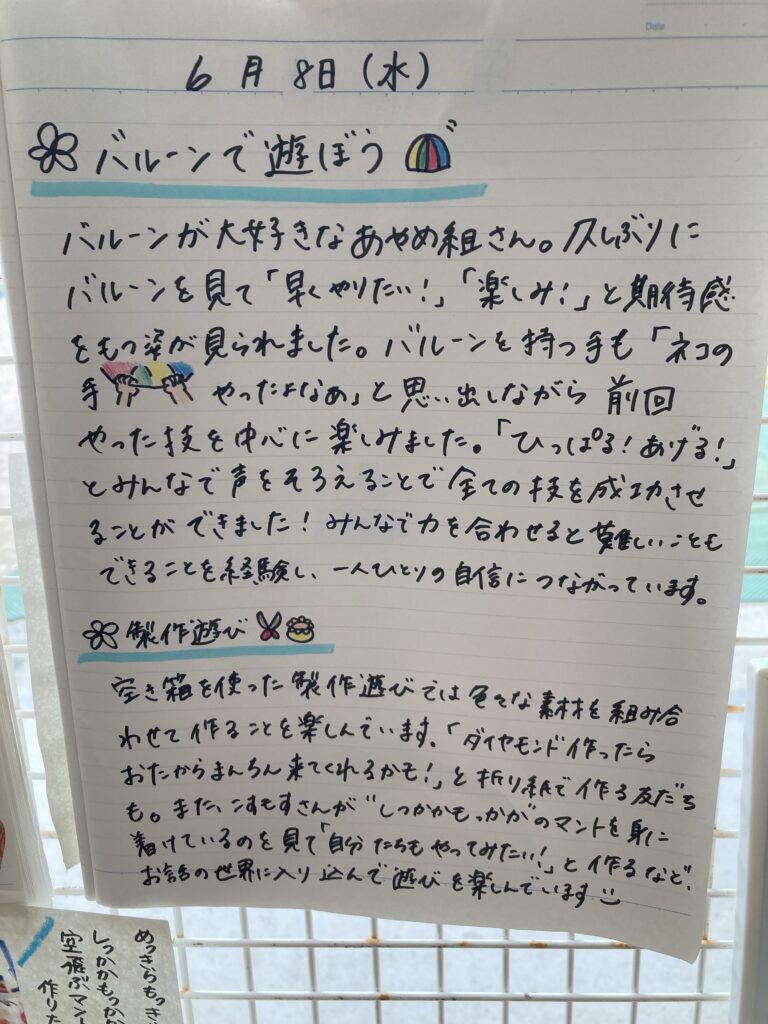 Date
6月8日（水）
バルーンで遊ぼう
バルーンが大好きなあやめ組さん。久しぶりに
バルーンを見て「早くやりたい！」「楽しみ！」と期待感
をもつ姿が見られました。バルーンを持つ手も「ネコの
手 やったよなぁ」と思い出しながら 前回
やった技を中心に楽しみました。「ひっぱる！あげる！」
とみんなで声をそろえることで全ての技を成功させ
ることができました！みんなで力を合わせると難しいことも
できることを経験し、一人ひとりの自信につながっています。
製作遊び
空き箱を使った製作遊びでは色々な素材を組み合
わせて作ることを楽しんでいます。「ダイヤモンド作ったら
おたからまんちん来てくれるかも！」と折り紙で作る友だち
も。また、こすもすさんが"しっかかもっかが"のマントを身に
着けているのを見て「自分たちもやってみたい！」と作るなど、
お話の世界に入り込んで遊びを楽しんでいます
めっきらもっき
しっかかもっか
空飛ぶマント
作りた